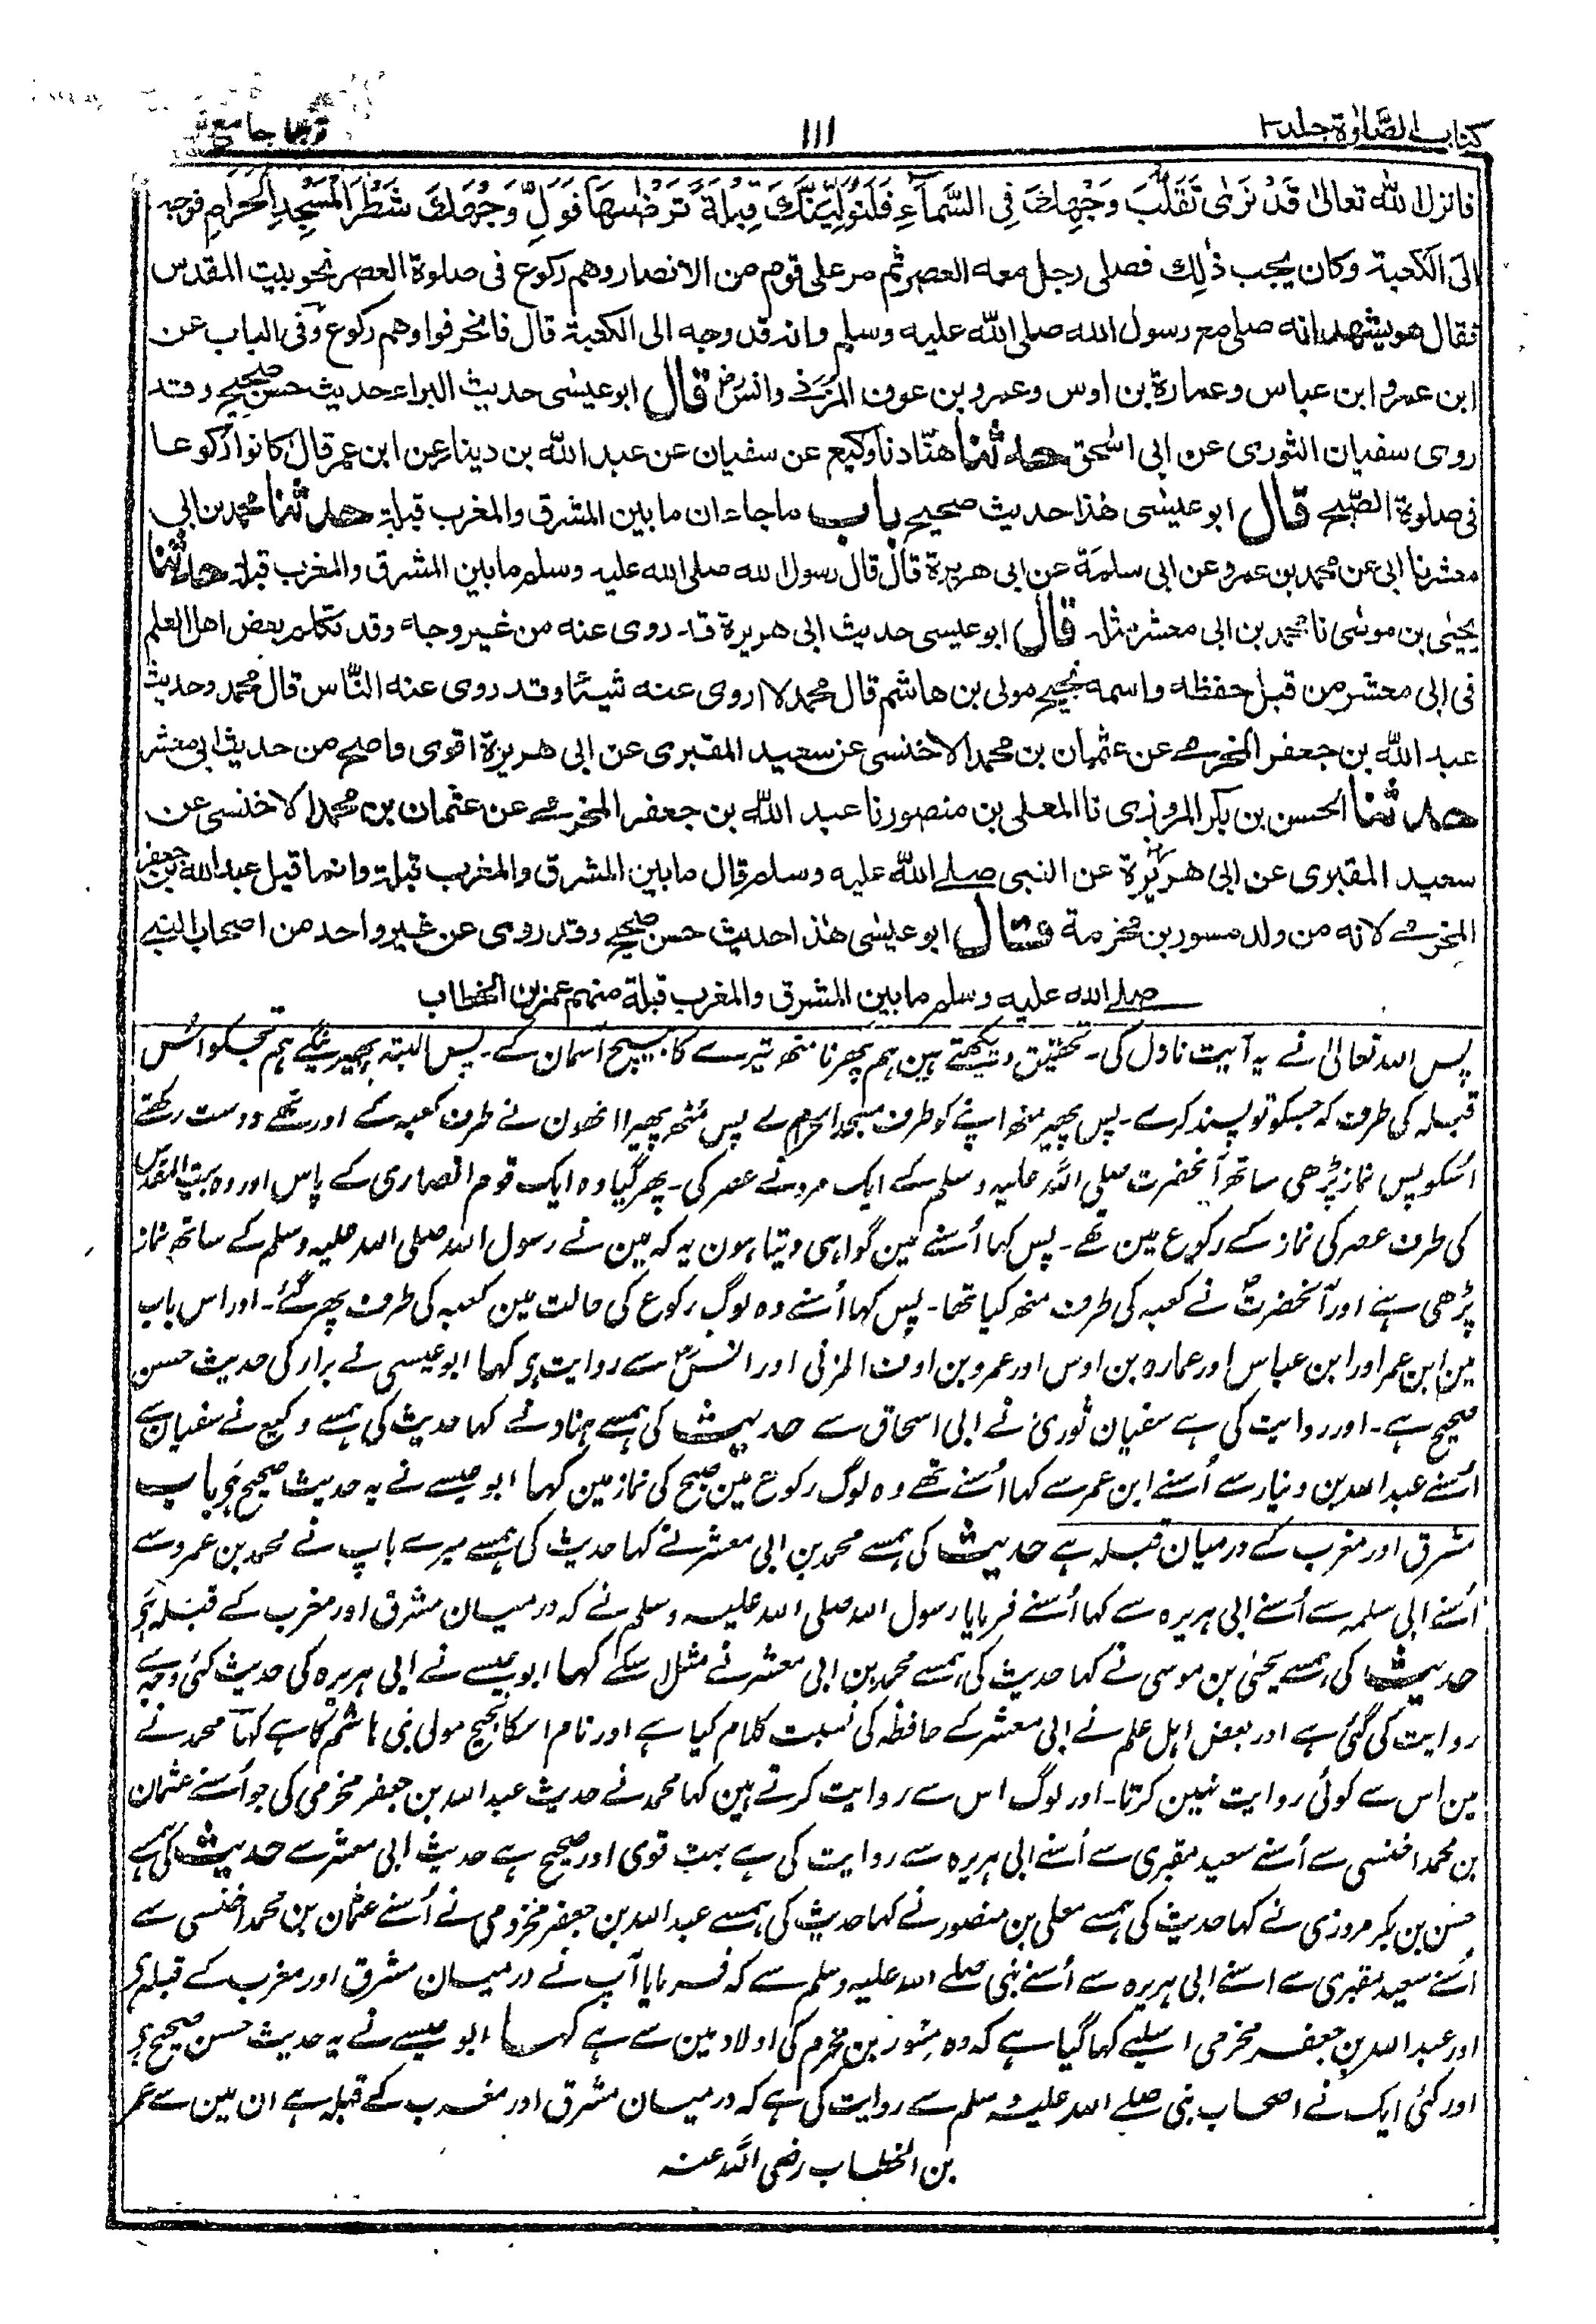 کتاب الصلوٰة جلد ۱
۱۱۱
ترجمہ جامع
فانزل الله تعالیٰ قَدْ نَرٰی تَقَلُّبَ وَجْهِكَ فِی السَّمَآءِ فَلَنُوَلِّیَنَّكَ قِبْلَةً تَرْضٰىهَا فَوَلِّ وَجْهَكَ شَطْرَ الْمَسْجِدِ الْحَرَامِ فوجه
الی الکعبة وکان یحب ذٰلك فصلی رجل معه العصر ثم مر علی قوم من الانصار وهم رکوع فی صلوة العصر نحو بیت المقدس
فقال هو یشهد انه صلی مع رسول الله صلی الله علیه وسلم وانه قد وجه الی الکعبة قال فانحرفوا وهم رکوع وفی الباب عن
ابن عمر و ابن عباس وعمارة بن اوس وعمرو بن عوف المزنی وانسؓ قال ابوعیسٰی حدیث البراء حدیث حسن صحیح وقد
روی سفیان الثوری عن ابی اسٰحق حدثنا هنّاد نا وکیع عن سفیان عن عبد الله بن دینار عن ابن عمر قال کانوا رکوعا
فی صلوة الصبح قال ابوعیسٰی هٰذا حدیث صحیح باب ماجاء ان ما بین المشرق والمغرب قبلة حدثنا محمد بن ابی
معشر نا ابی عن محمد بن عمرو عن ابی سلمَة عن ابی هریرة قال قال رسول الله صلی الله علیه وسلم ما بین المشرق والمغرب قبلة حدثنا
یحیٰی بن موسٰی نا محمد بن ابی معشر مثله قال ابوعیسی حدیث ابی هریرة قد روی عنه من غیر وجه وقد تکلم بعض اهل العلم
فی ابی معشر من قبل حفظه واسمه نجیح مولی بن هاشم قال محمد لا اروی عنه شیئا وقد روی عنه النّاس قال محمد وحدیث
عبد الله بن جعفر المخرمی عن عثمان بن محمد الاخنسی عن سعید المقبری عن ابی هریرة اقوی واصح من حدیث ابی معشر
حدثنا الحسن بن بکر المروزی نا المعلی بن منصور نا عبد الله بن جعفر المخرمی عن عثمان بن محمد الاخنسی عن
سعید المقبری عن ابی هریرة عن النبی صلے الله علیه وسلم قال ما بین المشرق والمغرب قبلة وانما قیل عبد الله بن جعفر
المخرمی لانه من ولد مسور بن مخرمة قال ابوعیسٰی هٰذا حدیث حسن صحیح وقد روی عن غیر واحد من اصحاب النبی
صلے الله علیه وسلم ما بین المشرق والمغرب قبلة منهم عمر بن الخطاب
پس اللہ تعالیٰ نے یہ آیت نازل کی۔ تحقیق دیکھتے ہین ہم پھرنا منھ تیرے کا بیچ آسمان کے۔ پس البتہ پھیرینگے ہم تجکو اُس
قبلہ کی طرف کہ جسکو تو پسند کرے۔ پس پھیر منھ اپنے کو طرف مسجد الحرام کے پس مُنھ پھیرا انھون نے طرف کعبہ کے اور تھے دوست رکھتے
اُسکو پس نماز پڑھی ساتھ آنحضرت صلی اللہ علیہ وسلم کے ایک مرد نے عصر کی۔ پھر گیا وہ ایک قوم انصاری کے پاس اور وہ بیت المقدس
کی طرف عصر کی نماز کے رکوع مین تھے۔ پس کہا اُسنے مین گواہی دیتا ہون یہ کہ مین نے رسول اللہ صلی اللہ علیہ وسلم کے ساتھ نماز
پڑھی ہے اور آنحضرتؐ نے کعبہ کی طرف منھ کیا تھا۔ پس کہا اُسنے وہ لوگ رکوع کی حالت مین کعبہ کی طرف پھر گئے۔ اور اس باب
مین ابن عمر اور ابن عباس اور عمارہ بن اوس اور عمرو بن اوف المزنی اور انسؓ سے روایت ہے کہا ابوعیسی نے برار کی حدیث حسن
صحیح ہے۔ اور روایت کی ہے سفیان ثوری نے ابی اسحاق سے حدیث کی ہمسے ہناد نے کہا حدیث کی ہمسے وکیع نے سفیان سے
اُسنے عبد اللہ بن دینار سے اُسنے ابن عمر سے کہا اُسنے تھے وہ لوگ رکوع مین صبح کی نماز مین کہا ابوعیسے نے یہ حدیث صحیح ہے باب
مشرق اور مغرب کے درمیان قبلہ ہے حدیث کی ہمسے محمد بن ابی معشر نے کہا حدیث کی ہمسے میرے باپ نے محمد بن عمرو سے
اُسنے ابی سلمہ سے اُسنے ابی ہریرہ سے کہا اُسنے فرمایا رسول اللہ صلی اللہ علیہ وسلم نے کہ درمیان مشرق اور مغرب کے قبلہ ہے
حدیث کی ہمسے یحییٰ بن موسی نے کہا حدیث کی ہمسے محمد بن ابی معشر نے مثل اسکے کہا ابوعیسے نے ابی ہریرہ کی حدیث کئی وجہ سے
روایت کی گئی ہے اور بعض اہل علم نے ابی معشر کے حافظہ کی نسبت کلام کیا ہے اور نام اسکا نجیح مولی بنی ہاشم کا ہے کہا محمد نے
مین اس سے کوئی روایت نہین کرتا۔ اور لوگ اس سے روایت کرتے ہین کہا محمد نے حدیث عبد اللہ بن جعفر مخرمی کی جو اُسنے عثمان
بن محمد اخنسی سے اُسنے سعید مقبری سے اُسنے ابی ہریرہ سے روایت کی ہے بہت قوی اور صحیح ہے حدیث ابی معشر سے حدیث کی ہمسے
حسن بن بکر مروزی نے کہا حدیث کی ہمسے معلی بن منصور نے کہا حدیث کی ہمسے عبد اللہ بن جعفر مخزومی نے اُسنے عثمان بن محمد اخنسی سے
اُسنے سعید مقبری سے اسنے ابی ہریرہ سے اُسنے نبی صلے اللہ علیہ وسلم سے کہ فرمایا آپ نے درمیان مشرق اور مغرب کے قبلہ ہے
اور عبد اللہ بن جعفر مخرمی اسلیے کہا گیا ہے کہ وہ مِسْوَر بن مخرم کی اولاد مین سے ہے کہا ابوعیسے نے یہ حدیث حسن صحیح ہے
اور کئی ایک نے اصحاب نبی صلے اللہ علیہ وسلم سے روایت کی ہے کہ درمیان مشرق اور مغرب کے قبلہ ہے ان مین سے عمر
بن الخطاب رضی اللہ عنہ